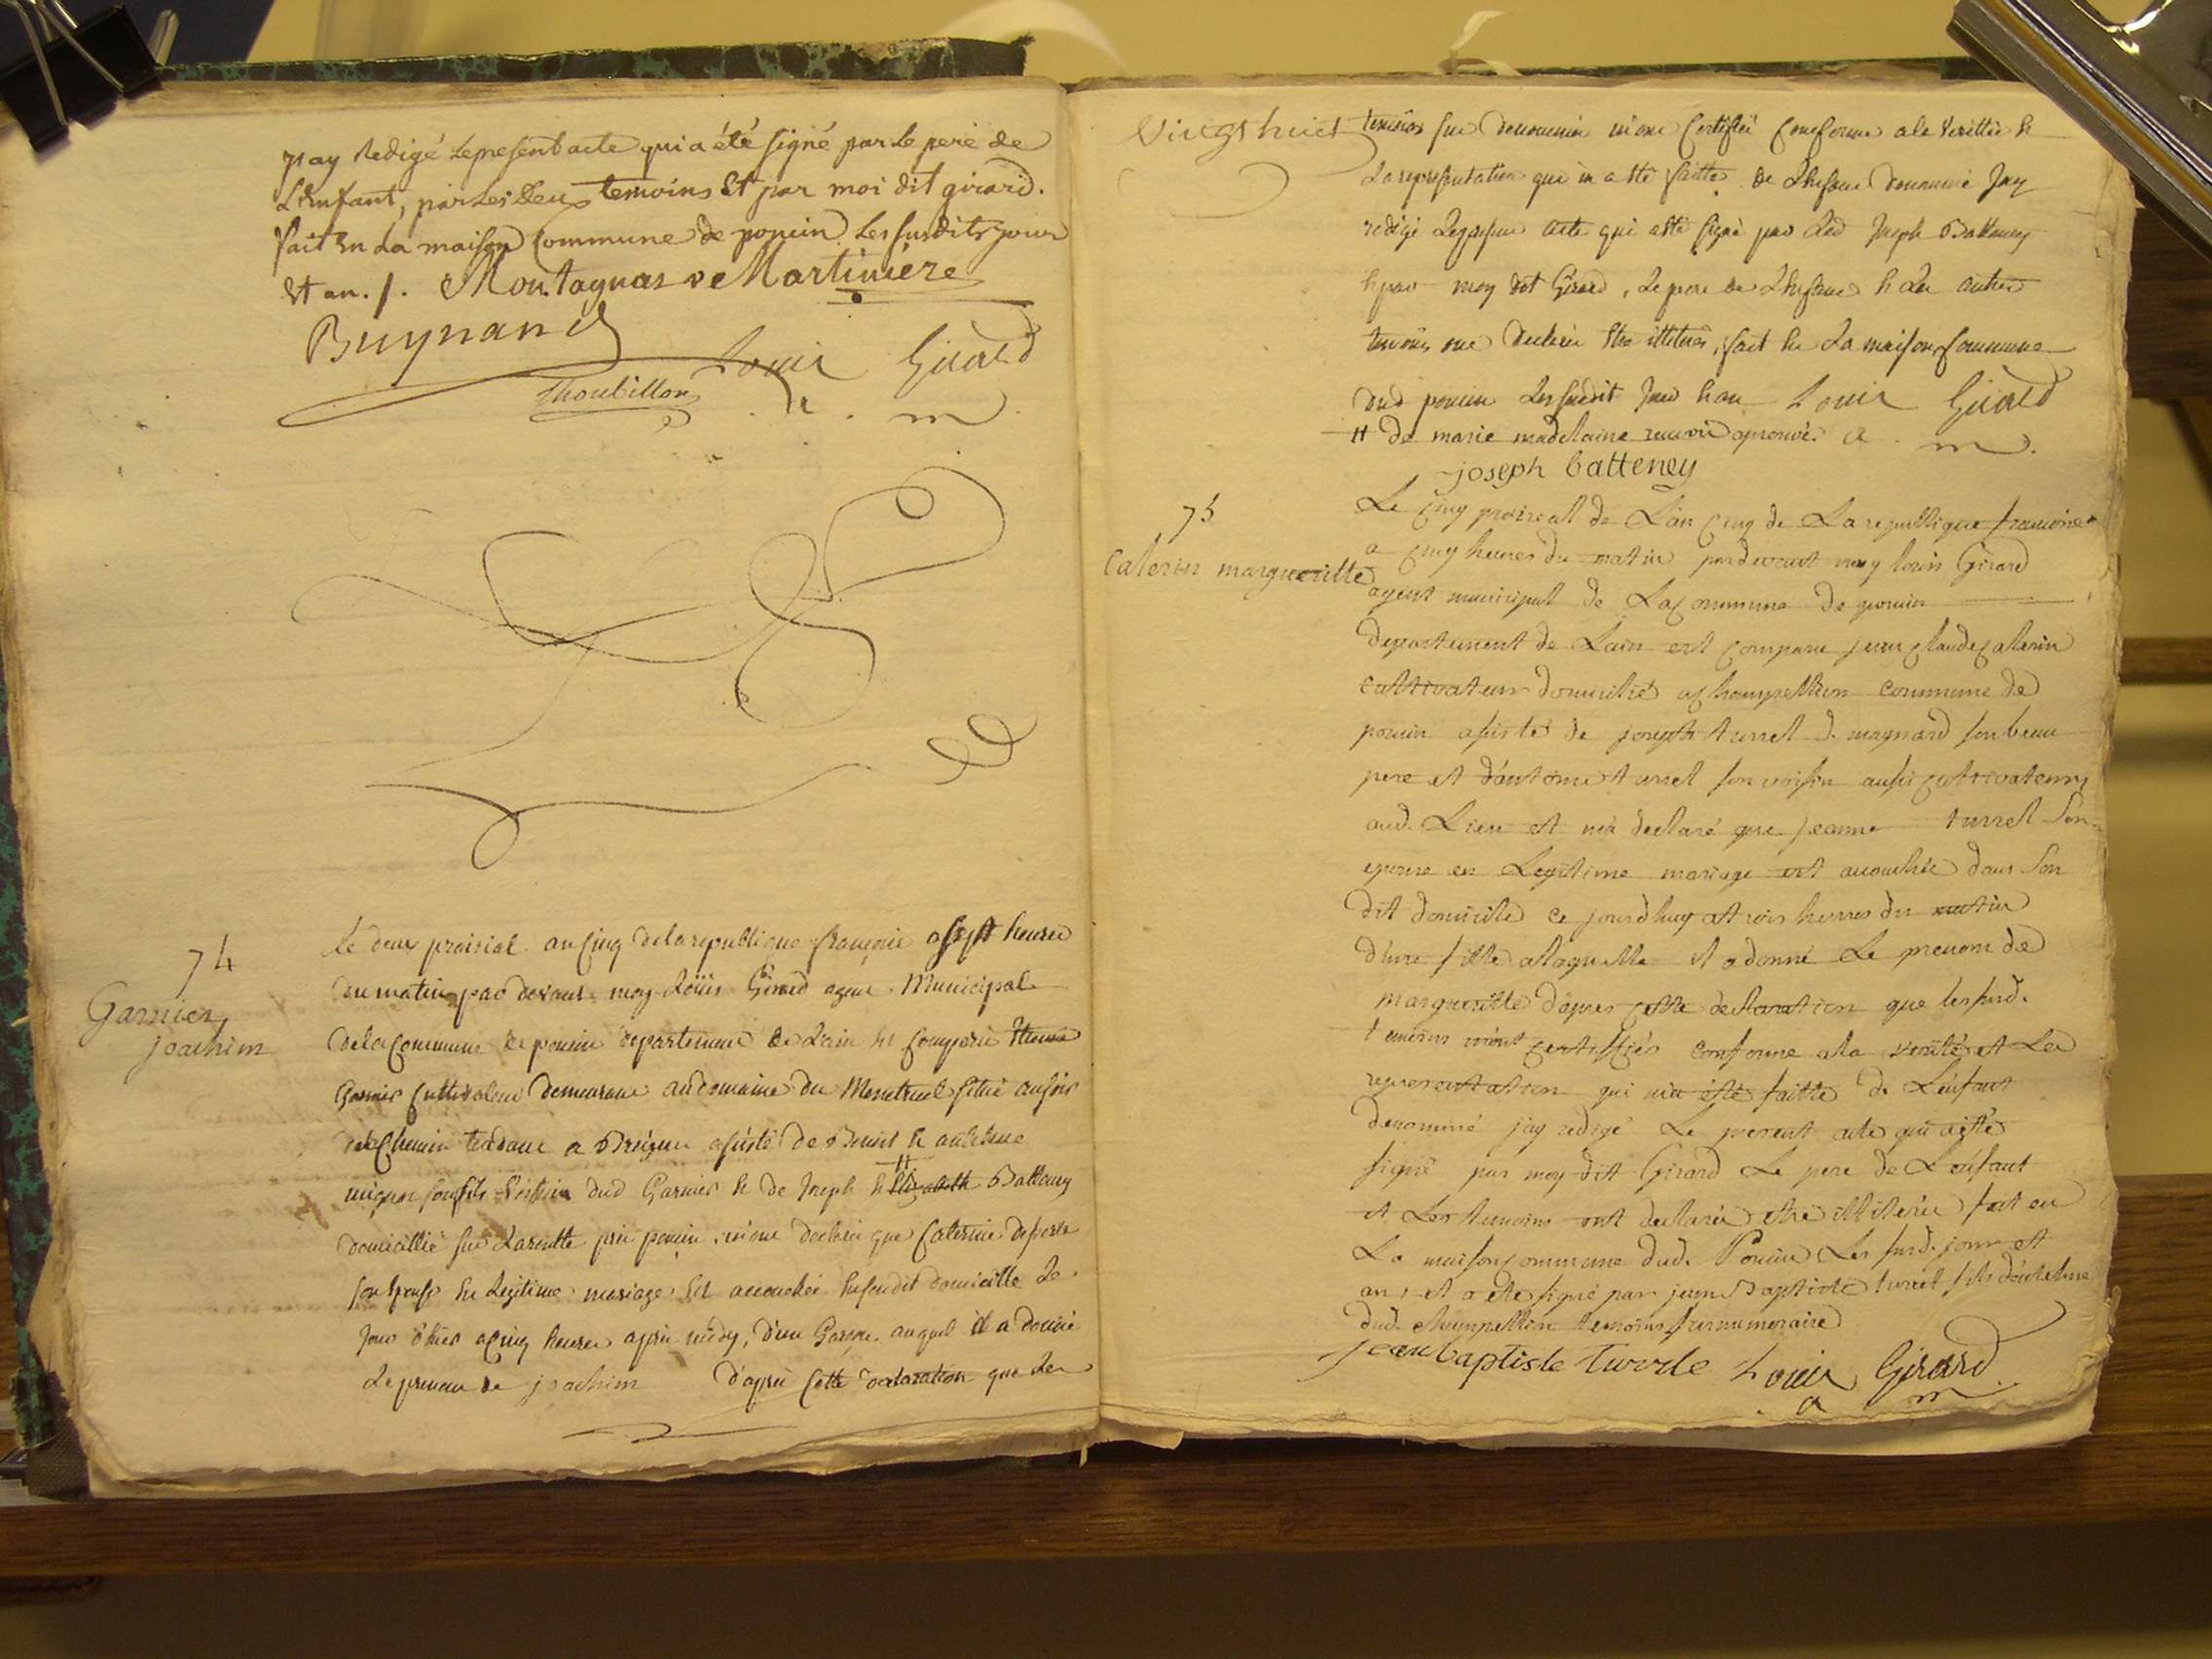 jay redigé le present acte qui a été signé par le pere de
L'Enfant, par les deux temoins Et par moi dit girard.
fait En La maison Commune de poncin Les susdits jour
Et an. /. Montagnas de Martiniere
Buynand
Thoubillon Louis Girard
a . m
74
Garnier
joachim
le deux prairial an cinq de la republique française a sept heures
du matin par devant moy Loüis Girard agent Municipal
de la Commune de poncin departement de Lain Est Comparu Etienne
Garnier Cultivateur demeurant au domaine du Menetruel situé au soir
du Chemin tendant a Breignes assisté de Benoit h
dud Garnier h de Joseph h Elizabeth Batteney
domicillié sur près poncin, m'ont declaré que Caterine
son Epouse En Legitime mariage Est accouchée En son dit domicille Le
jour d'hier a cinq heures après midy, d'un Garçon auquel il a donné
Le prenom de joachim d'après cette declaration que Les
Vingt huict
temoins sus denommés m'ont Certifiés Conforme a la Verittée h
La representation qui m'a été faitte de L'Enfant denommé Jay
redigé Le present acte qui a été signé par Led Joseph Batteney
h par moy dit Girard, Le pere de L'Enfant h Les autres
temoins ont declaré Etre illiterés, fait En La maison Commune
dud poncin Les susdit Jour h an Louis Girard
# de marie madelaine renvoi aprouvé. a . m.
joseph batteney
75
Caterin margueritte
Le cinq praireal de L'an cinq de La republique francoise
a cinq heures du matin pardevant moy louis Girard
agent municipal de La commune de poncin
departement de Lain est comparu jean claude caterin
cultivateur domicilié a champeillon commune de
poncin assisté de joseph turrel d. magnard son beau
pere et d'antoine turrel son voisin aussi cultivateurs
aud. Lieu et m'a declaré que jeanne turrel Son
epouse en Legitime mariage est accouchée dans Son
dit domicile ce jourdhuy a trois heures du matin
d'une fille a laquelle il a donné Le prenom de
margueritte d'apres cette declaration que les susd.
temoins m'ont certiffiés conforme a la verité et La
representation qui m'a été faitte de L'enfant
denommé j'ay redigé Le present acte qui a ette
signé par moy dit Girard Le pere de L'enfant
et Les temoins ont declarés etre illiterés fait en
La maison commune dud. Poncin Les susd. jour et
an, et a ete signé par jean Baptiste turrel fils d'antelme
dud. champeillon temoins surnumeraire
jean baptiste turrle Louis Girard
a m